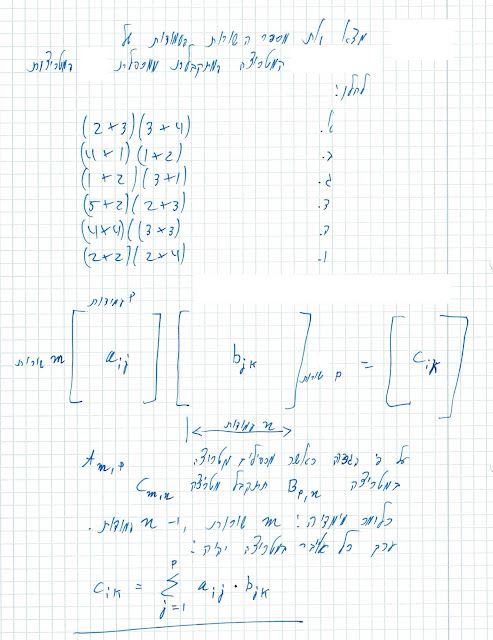 מצא את מספר השורות והעמודות של
המטריצה המתקבלת ממכפלת המטריצות
להלן:
א. (2×3)(3×4)
ב. (4×1)(1×2)
ג. (1×2)(3×1)
ד. (5×2)(2×3)
ה. (4×4)(3×3)
ו. (2×2)(2×4)
p עמודות
m שורות [a_{ij}] [b_{jk}] p שורות = [c_{ik}]
n עמודות
על פי הגדרה כאשר מכפילים מטריצה A_{m,p}
במטריצה B_{p,n} תתקבל מטריצה C_{m,n}
כלומר מימדיה: m שורות, ו-n עמודות.
ערך כל איבר במטריצה יהיה:
c_{ik} = \sum_{j=1}^{p} a_{ij} · b_{jk}